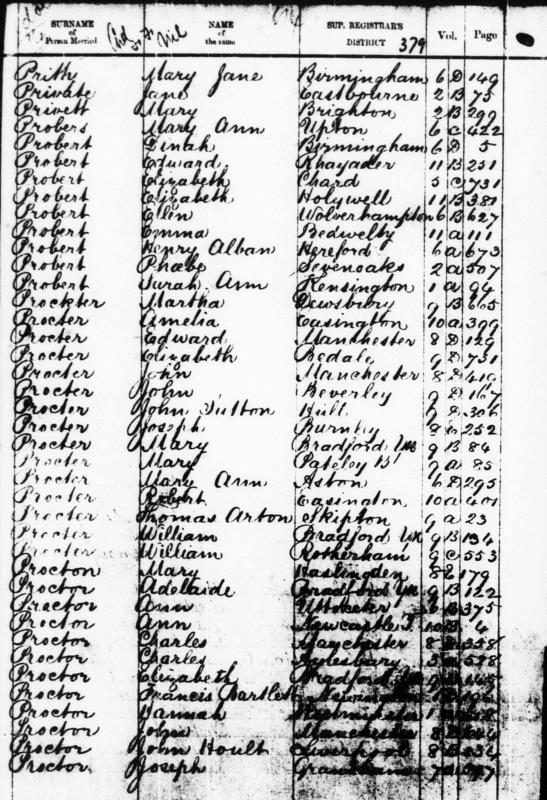 SURNAME of Person Married NAME of the same SUP. REGISTRAR'S DISTRICT 379 Vol. Page
Prithy Mary Jane Birmingham 6 D 149
Private Jane Eastbourne 2 B 75
Privett Mary Brighton 2 B 299
Probers Mary Ann Upton 6 C 422
Probert Dinah Birmingham 6 D 5
Probert Edward Rhayader 11 B 251
Probert Elizabeth Chard 5 C 731
Probert Elizabeth Holywell 11 B 381
Probert Ellen Wolverhampton 6 B 627
Probert Emma Bedwelty 11 a 111
Probert Henry Alban Hereford 6 a 673
Probert Phoebe Sevenoaks 2 a 507
Probert Sarah Ann Kensington 1 a 94
Prockter Martha Dewsbury 9 B 665
Procter Amelia Easington 10 a 399
Procter Edward Manchester 8 D 129
Procter Elizabeth Bedale 9 D 731
Procter John Manchester 8 D 419
Procter John Beverley 9 D 167
Procter John Sutton Hull 9 D 306
Procter Joseph Burnley 8 E 252
Procter Mary Bradford 9 B 84
Procter Mary Pateley B 9 a 85
Procter Mary Ann Aston 6 D 295
Procter Robert Easington 10 a 401
Procter Thomas Arton Skipton 9 a 23
Procter William Bradford 9 B 134
Procter William Rotherham 9 C 553
Procton Mary Haslingden 8 E 179
Proctor Adelaide Bradford 9 B 122
Proctor Ann Uttoxeter 6 B 375
Proctor Ann Newcastle T. 10 B 4
Proctor Charles Manchester 8 D 358
Proctor Charles Aylesbury 3 a 538
Proctor Elizabeth Bradford 9
Proctor Francis Bartlett Newington 1
Proctor Hannah Westminster 1
Proctor John Manchester 8 D
Proctor John Hoult Liverpool 8 B
Proctor Joseph Grantham 7 a